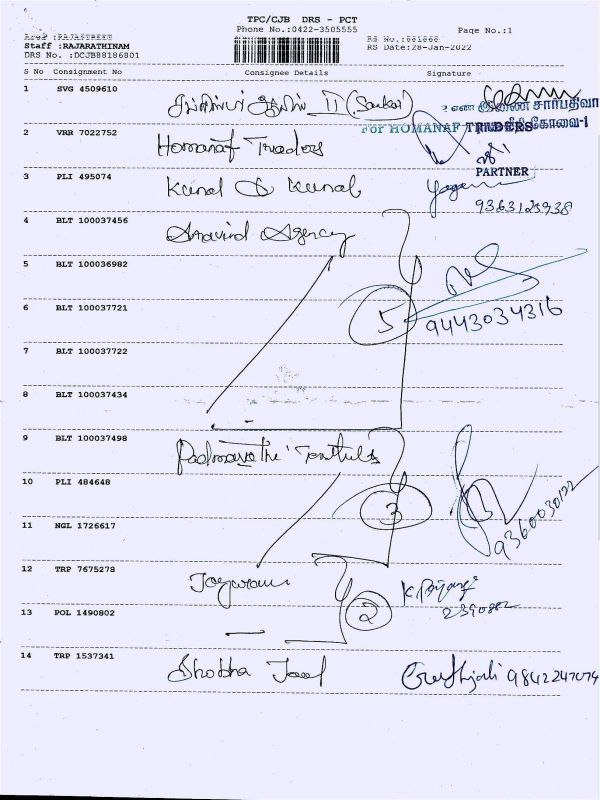 TPC/CJB DRS - PCT
Phone No.:0422-3505555
Page No.:1
Area :RAJASTREET
Staff :RAJARATHINAM
DRS No. :DCJB88186801
RS Date:28-Jan-2022
S No Consignment No Consignee Details Signature
1 SVG 4509610
இணை சார்பதிவா
2 VRR 7022752 Homanaf Traders
For HOMANAF TRADERS
PARTNER
3 PLI 495074 Kunal & Kunal
9363125938
4 BLT 100037456 Aravind Agency
5 BLT 100036982
5
9443034316
6 BLT 100037721
7 BLT 100037722
8 BLT 100037434
9 BLT 100037498 Padmavathi
10 PLI 484648
3
9360030122
11 NGL 1726617
12 TRP 7675278 Jayaram
2
13 POL 1490802
2390882
14 TRP 1537341 Shobha
9842247074